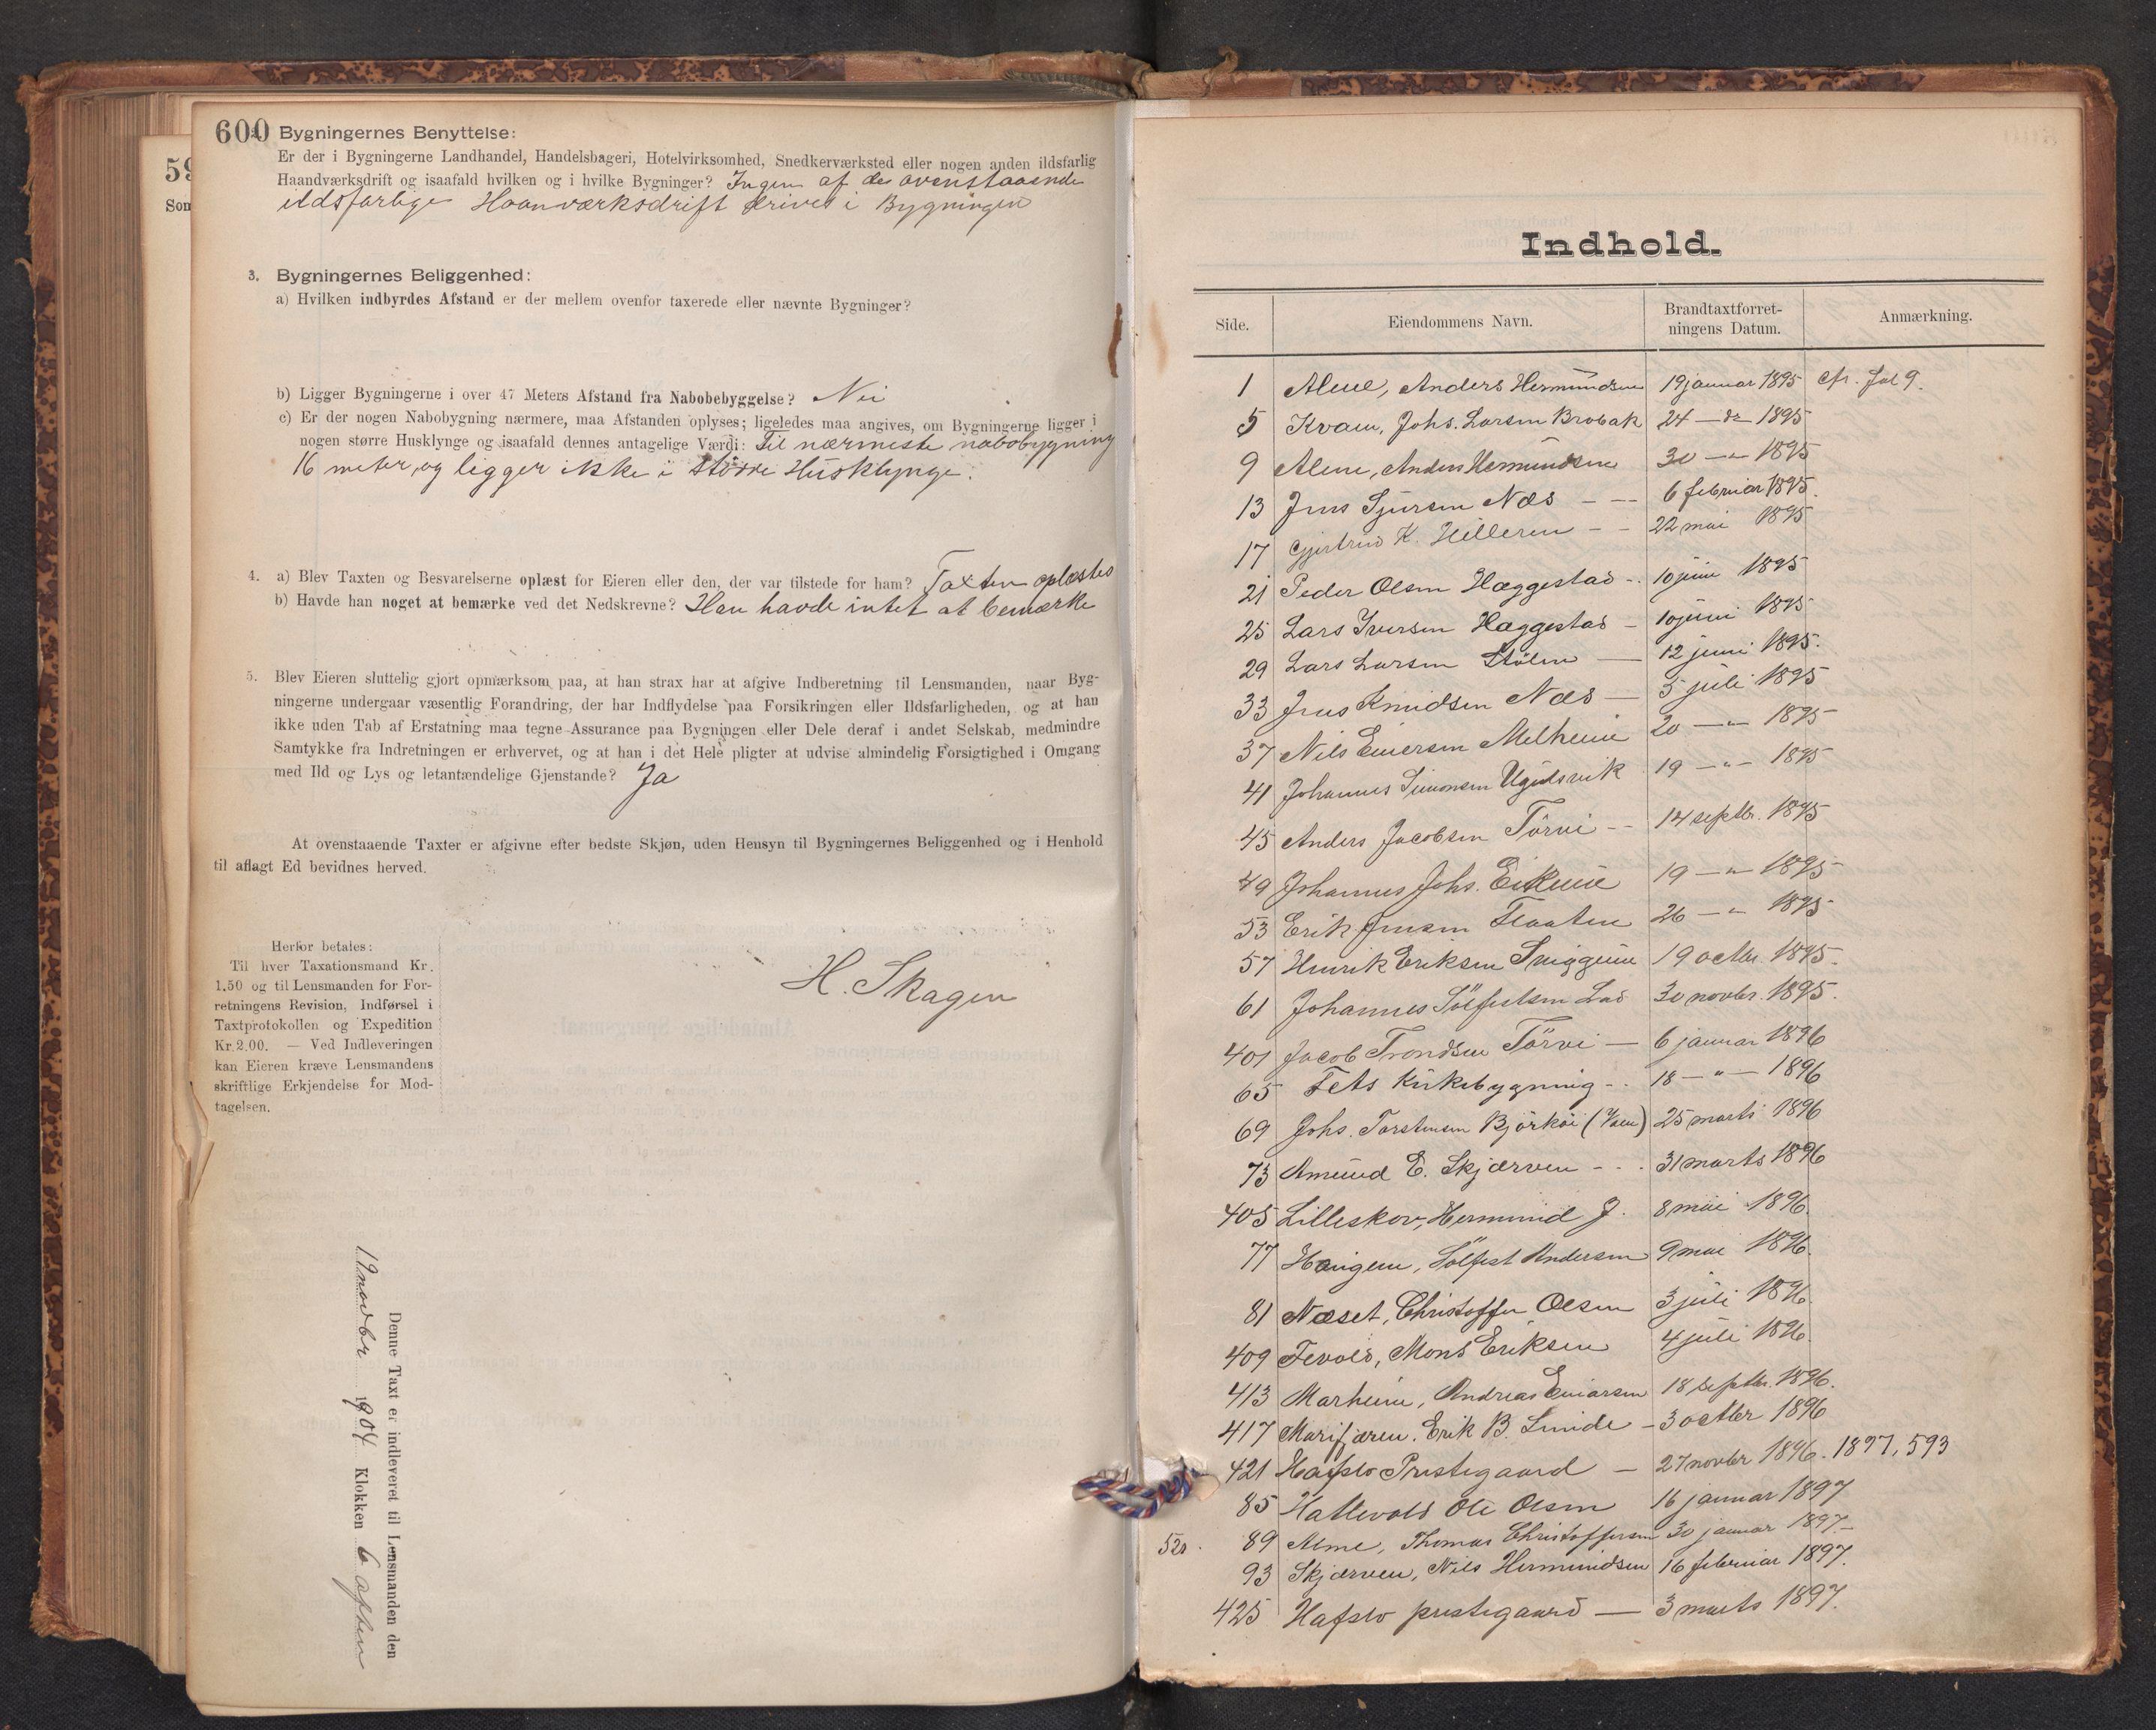 600
2. Bygningernes Benyttelse:
Er der i Bygningerne Landhandel, Handelsbageri, Hotelvirksomhed, Snedkerværksted eller nogen anden ildsfarlig
Haandværksdrift og isaafald hvilken og i hvilke Bygninger? Ingen af de ovenstaaende
ildsfarlige Haanværksdrift drives i Bygningen
3. Bygningernes Beliggenhed:
a) Hvilken indbyrdes Afstand er der mellem ovenfor taxerede eller nævnte Bygninger?
b) Ligger Bygningerne i over 47 Meters Afstand fra Nabobebyggelse? Nei
c) Er der nogen Nabobygning nærmere, maa Afstanden oplyses; ligeledes maa angives, om Bygningerne ligger i
nogen større Husklynge og isaafald dennes antagelige Værdi: Til nærmeste nabobygning
16 meter, og ligger ikke i større Husklynge.
4. a) Blev Taxten og Besvarelserne oplæst for Eieren eller den, der var tilstede for ham? Taxten oplæstes
b) Havde han noget at bemærke ved det Nedskrevne? Han havde intet at bemærke
5. Blev Eieren sluttelig gjort opmærksom paa, at han strax har at afgive Indberetning til Lensmanden, naar Byg-
ningerne undergaar væsentlig Forandring, der har Indflydelse paa Forsikringen eller Ildsfarligheden, og at han
ikke uden Tab af Erstatning maa tegne Assurance paa Bygningen eller Dele deraf i andet Selskab, medmindre
Samtykke fra Indretningen er erhvervet, og at han i det Hele pligter at udvise almindelig Forsigtighed i Omgang
med Ild og Lys og letantændelige Gjenstande? Ja
At ovenstaaende Taxter er afgivne efter bedste Skjøn, uden Hensyn til Bygningernes Beliggenhed og i Henhold
til aflagt Ed bevidnes herved.
H. Skagen
Herfor betales:
Til hver Taxationsmand Kr.
1.50 og til Lensmanden for For-
retningens Revision, Indførsel i
Taxtprotokollen og Expedition
Kr. 2.00. — Ved Indleveringen
kan Eieren kræve Lensmandens
skriftlige Erkjendelse for Mod-
tagelsen.
Denne Taxt er indleveret til Lensmanden den
19 novbr 1904 Klokken 6 aften
59
Som
Indhold.
Side. Eiendommens Navn. Brandtaxtforret-
ningens Datum. Anmærkning.
1 Alme, Anders Hermundsen 19 januar 1895 cfr. fol 9.
5 Kvam, Johs. Larsen Brobak 24 — do — 1895
9 Alme, Anders Hermundsen 30 — " — 1895
13 Jens Sjursen Næs — — 6 februar 1895.
17 Gjertrud K. Hilleren — — 22 mai 1895
21 Peder Olsen Hæggestad - . 10 juni 1895
25 Lars Iversen Hæggestad — 10 juni 1895
29 Lars Larsen Stölen — 12 juni 1895.
33 Jens Knudsen Næs — 5 juli 1895
37 Nils Einersen Melheim 20 — " — 1895
41 Johannes Simonsen Ugulsvik 19 — " — 1895
45 Anders Jacobsen Törvi — 14 septbr. 1895
49 Johannes Johs. Eikum 19 — " — 1895
53 Erik Jensen Flaaten 26 — " — 1895
57 Henrik Eriksen Sniggum 19 octbr. 1895.
61 Johannes Sölfestsen Lad 30 novbr. 1895.
401 Jacob Trondsen Törvi — 6 januar 1896
65 Fets Kirkebygning - . 18 — " — 1896
69 Johs. Torstensen Björköi 25 marts 1896
73 Amund E. Skjærven - . . 31 marts 1896
405 Lilleskov, Hermund J. 8 mai 1896.
77 Haugen, Sölfest Andersen 9 mai 1896.
81 Næset, Christoffer Olsen 3 juli 1896.
409 Fevold, Mons Eriksen 4 juli 1896.
413 Marheim, Andreas Einarsen 18 septbr. 1896.
417 Marifjæren, Erik B. Linde — 3 octbr 1896
421 Hafslo Prestegaard — 27 novbr 1896. 1897, 593
85 Hattevold Ole Olsen 16 januar 1897
520. 89 Alme, Thomas Christoffersen 30 januar 1897 —
93 Skjærven, Nils Hermundsen 16 februar 1897.
425 Hafslo prestegaard — 3 marts 1897.